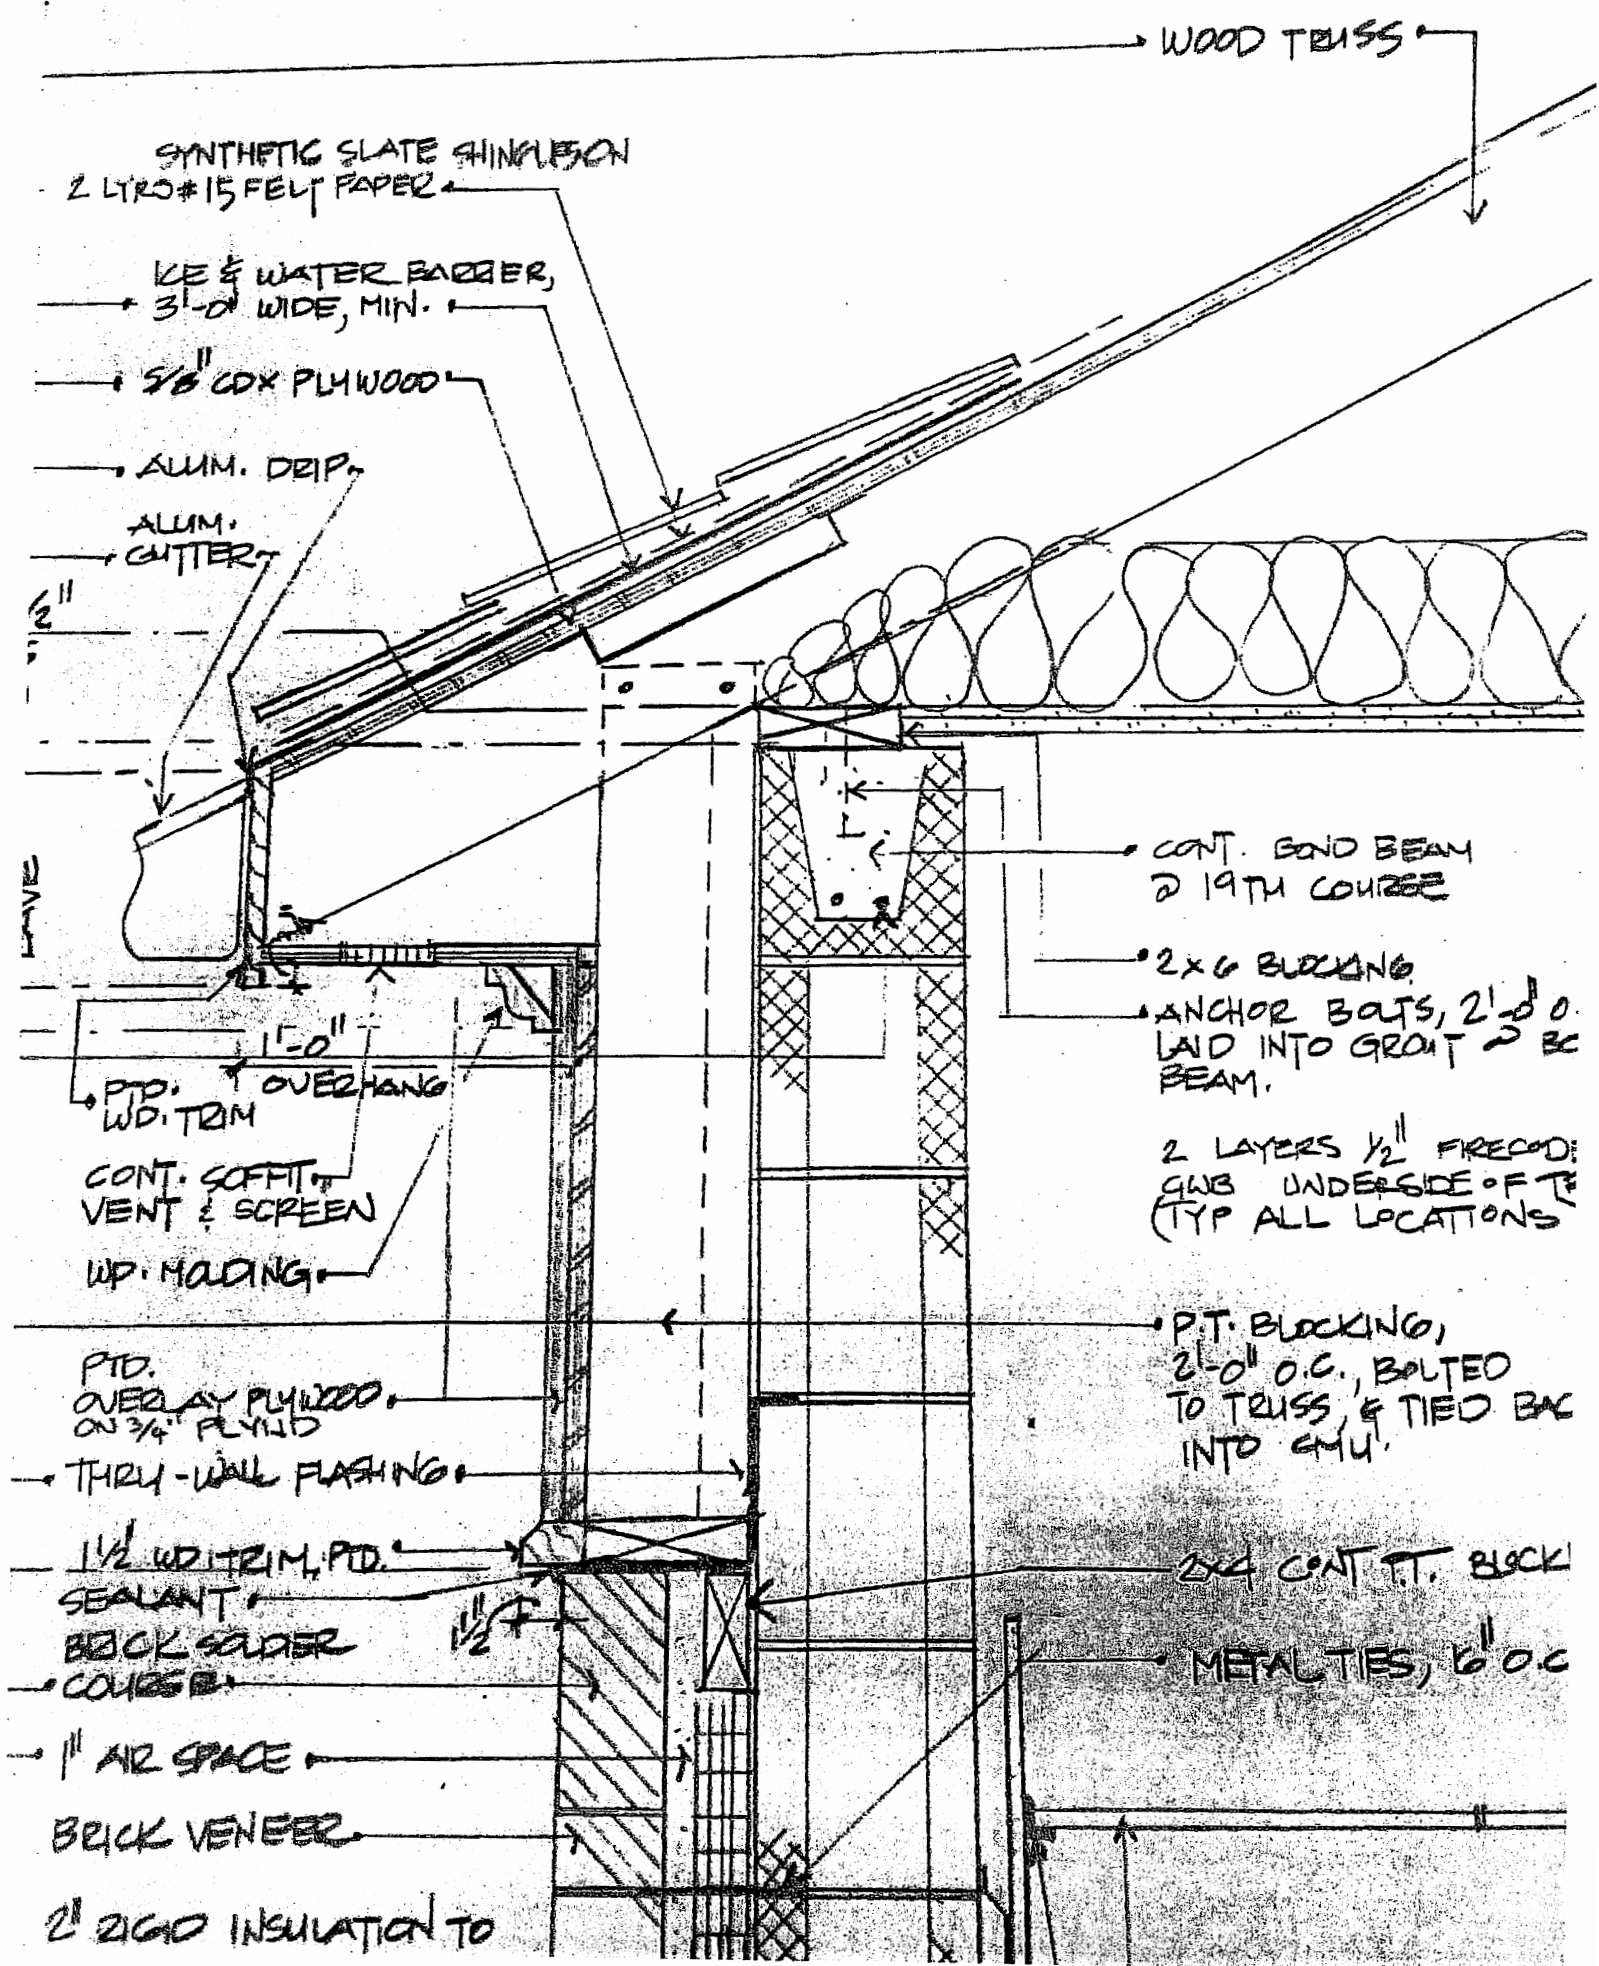 WOOD TRUSS
SYNTHETIC SLATE SHINGLES ON
2 LYRS #15 FELT PAPER
ICE & WATER BARRIER,
3'-0" WIDE, MIN.
5/8" CDX PLYWOOD
ALUM. DRIP
ALUM.
GUTTER
1/2"
EAVE
1'-0"
OVERHANG
PTD.
WD. TRIM
CONT. SOFFIT
VENT & SCREEN
WD. MOLDING
PTD.
OVERLAY PLYWOOD
ON 3/4" PLYWD
THRU-WALL FLASHING
1 1/2" WD. TRIM, PTD.
SEALANT
1 1/2"
BRICK SOLDIER
COURSE
1" AIR SPACE
BRICK VENEER
2" RIGID INSULATION TO
CONT. BOND BEAM
@ 19TH COURSE
2x6 BLOCKING
ANCHOR BOLTS, 2'-0" O.
LAID INTO GROUT @ BO
BEAM.
2 LAYERS 1/2" FIRECODE
GWB UNDERSIDE OF T
(TYP ALL LOCATIONS
P.T. BLOCKING,
2'-0" O.C., BOLTED
TO TRUSS, & TIED BAC
INTO CMU.
2x4 CONT P.T. BLOCK
METAL TIES, 16" O.C